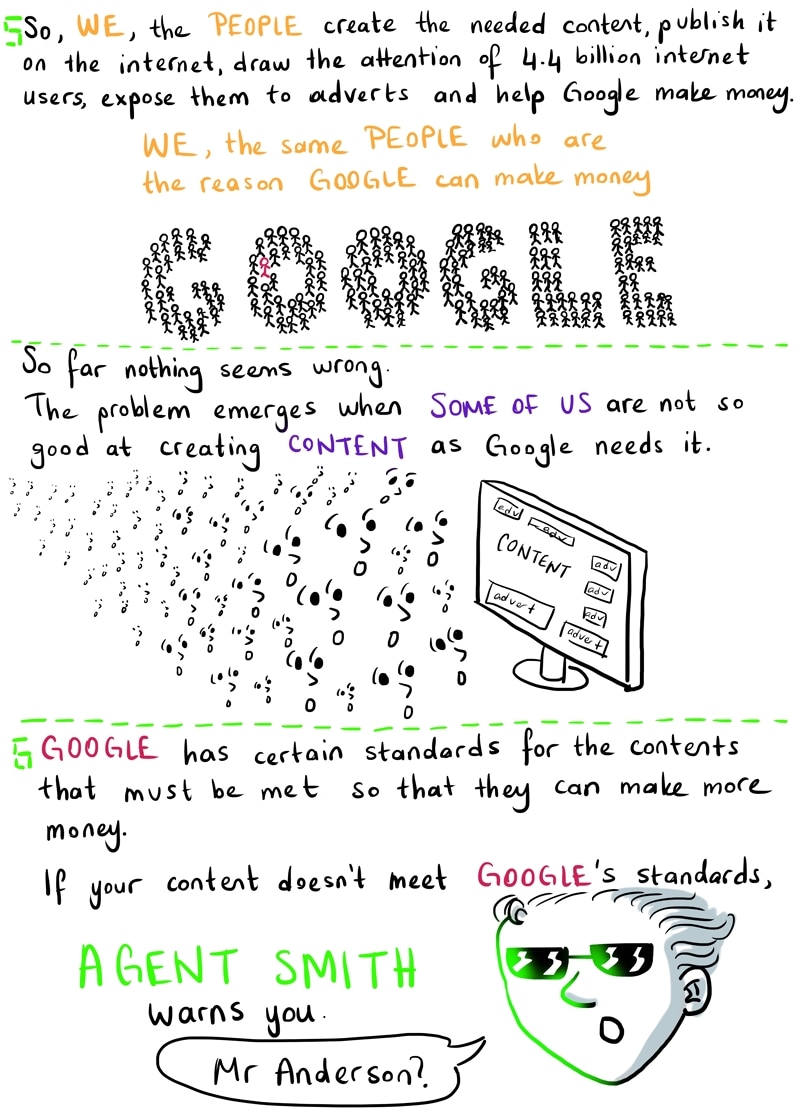 5 So, WE, the PEOPLE create the needed content, publish it
on the internet, draw the attention of 4.4 billion internet
users, expose them to adverts and help Google make money.
WE, the same PEOPLE who are
the reason GOOGLE can make money
GOOGLE
So far nothing seems wrong.
The problem emerges when SOME OF US are not so
good at creating CONTENT as Google needs it.
adv
adv
CONTENT
adv
adv
adv
advert
advert
5 GOOGLE has certain standards for the contents
that must be met so that they can make more
money.
If your content doesn't meet GOOGLE's standards,
AGENT SMITH
warns you.
Mr Anderson?